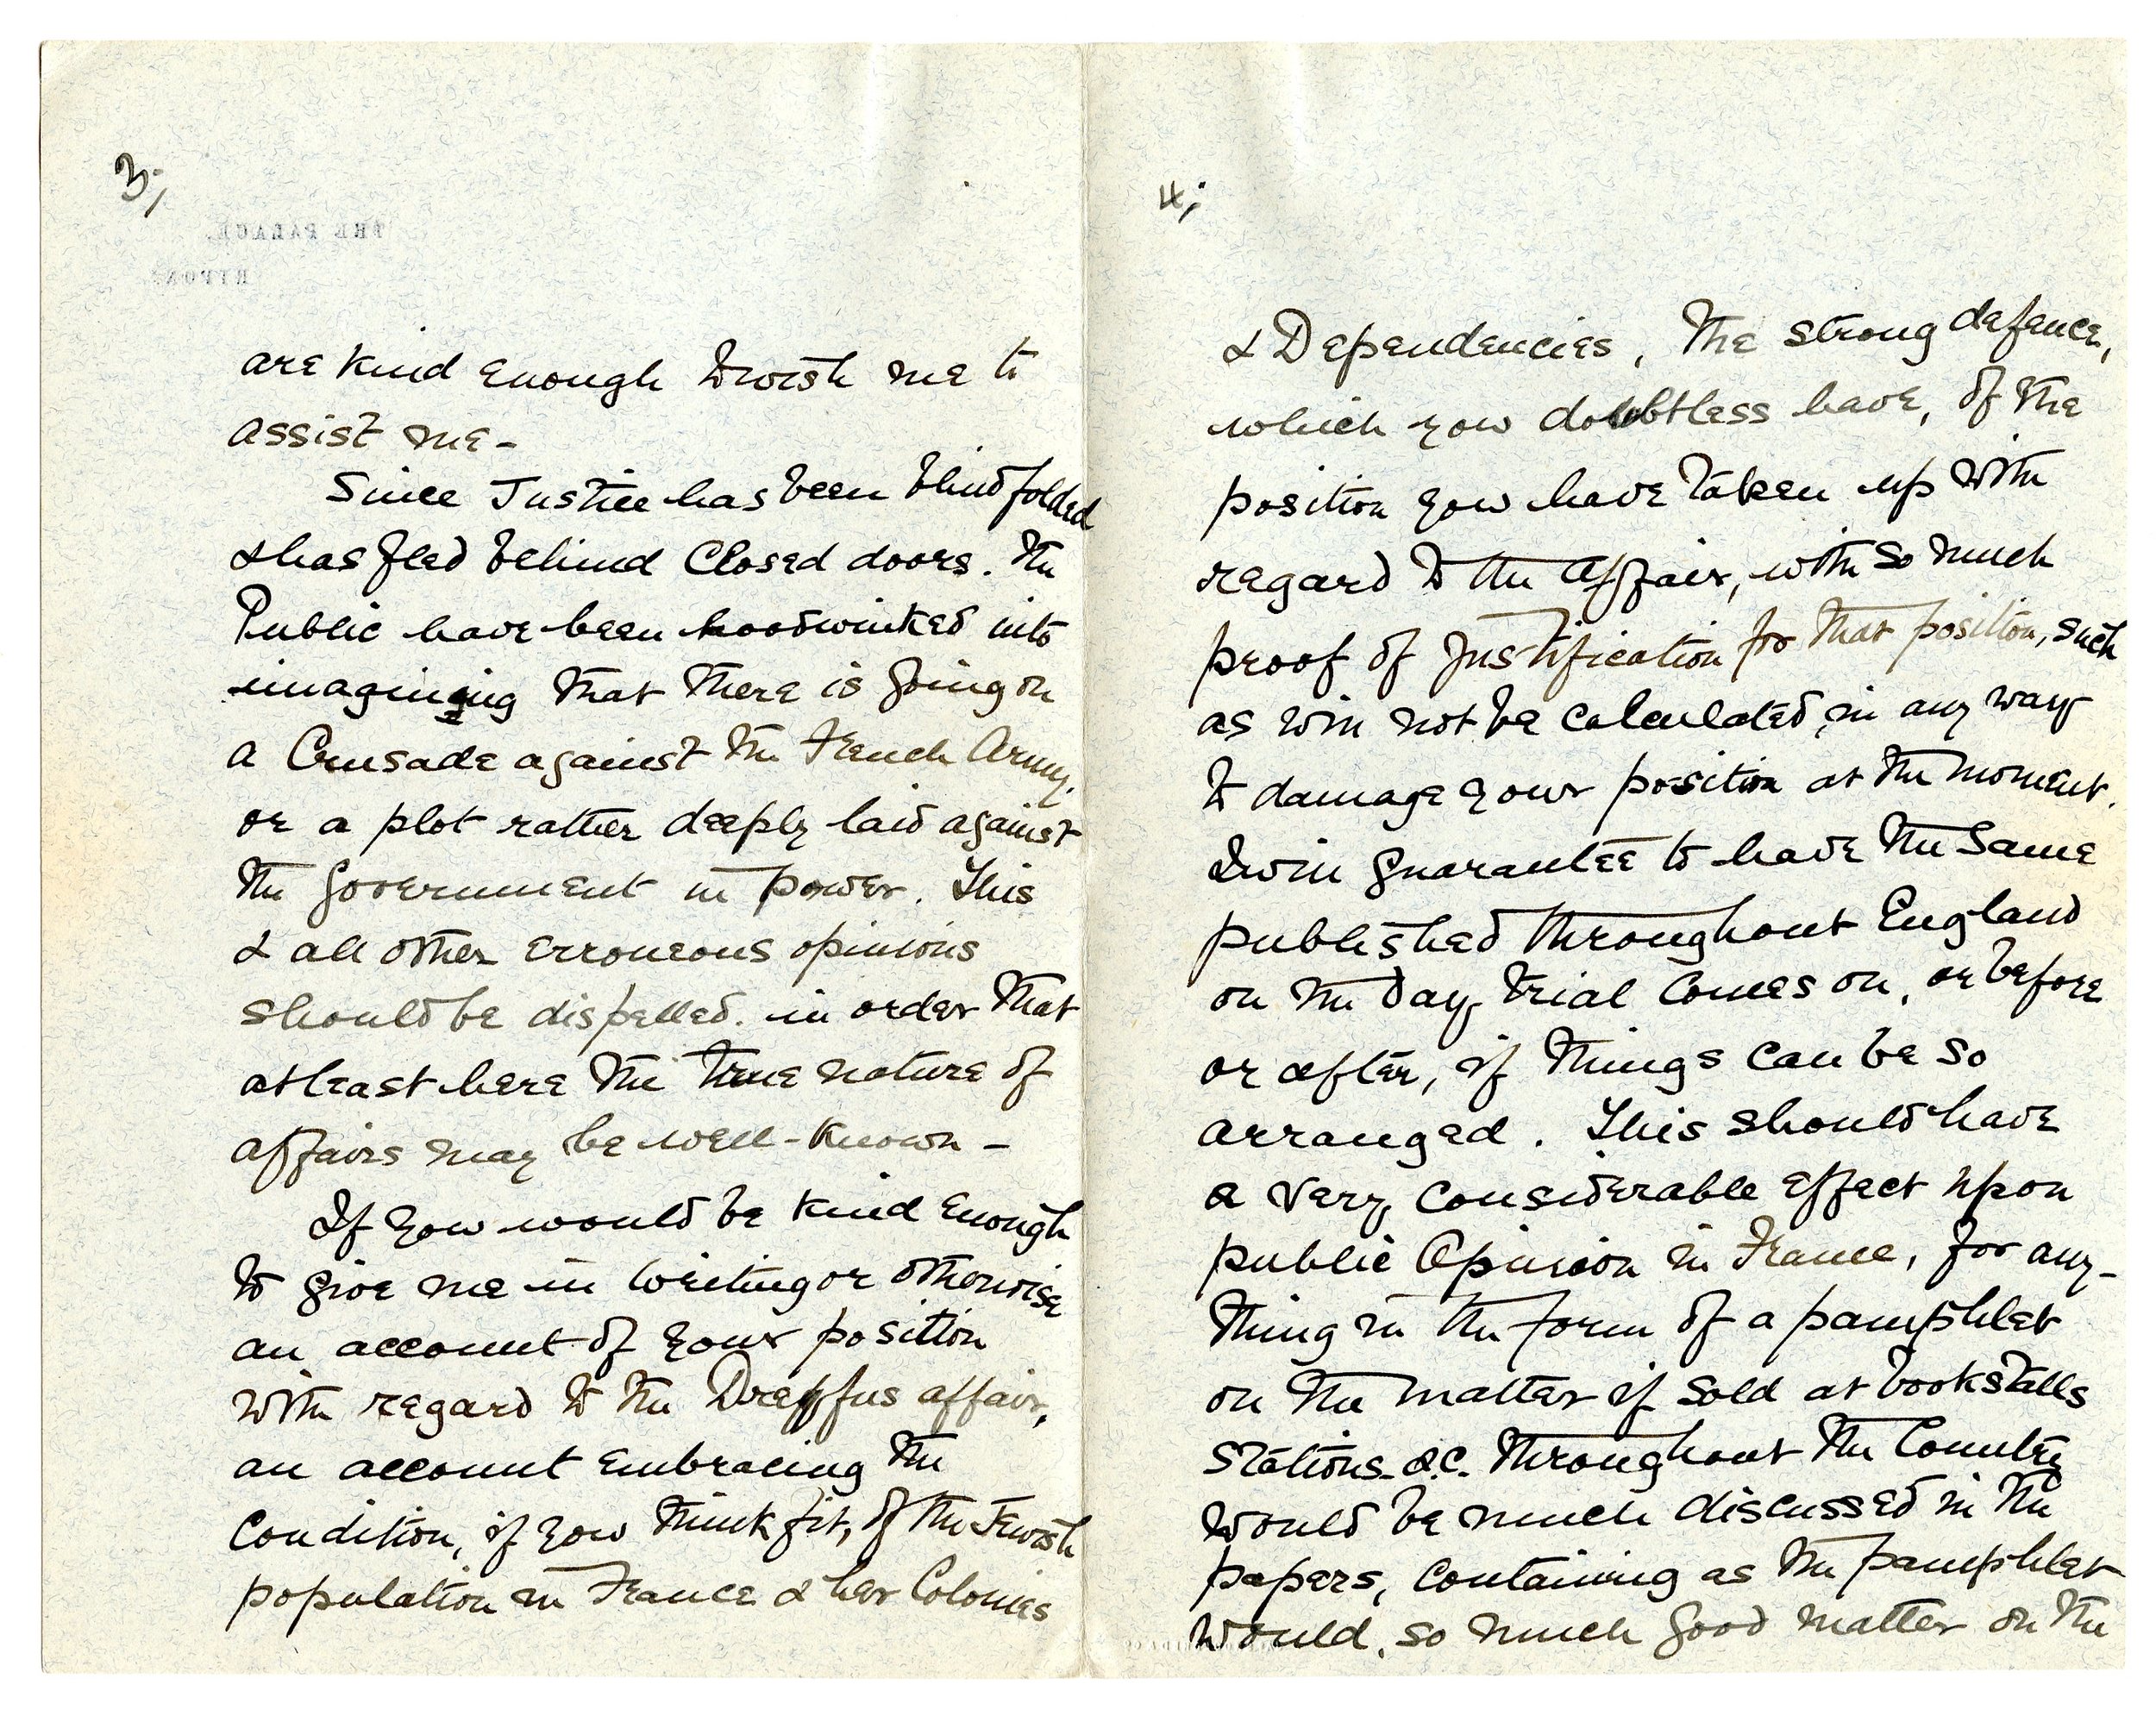 3;
THE PALACE,
RIPON.
are kind enough to wish me to
assist me -
Since Justice has been blindfolded
& has fled behind Closed doors. the
Public have been hoodwinked into
imagining that there is going on
a Crusade against the French Army,
or a plot rather deeply laid against
the Government in power. This
& all other erroneous opinions
should be dispelled. in order that
at least here the true nature of
affairs may be well-known -
If you would be kind enough
to give me in writing or otherwise
an account of your position
with regard to the Dreyfus affair,
an account embracing the
Condition, if you think fit, of the Jewish
population in France & her Colonies
4;
& Dependencies, The strong defence,
which you doubtless have, of the
position you have taken up with
regard to the Affair, with so much
proof of Justification for that position, such
as will not be calculated, in any way
to damage your position at the moment.
I will guarantee to have the same
published throughout England
on the day, trial Comes on, or before
or after, if things can be so
arranged. This should have
a very considerable effect upon
public Opinion in France, for any-
thing in the form of a pamphlet
on the matter if sold at bookstalls
stations &c. throughout the Country
would be much discussed in the
papers, containing as the pamphlet
would, so much good matter on the